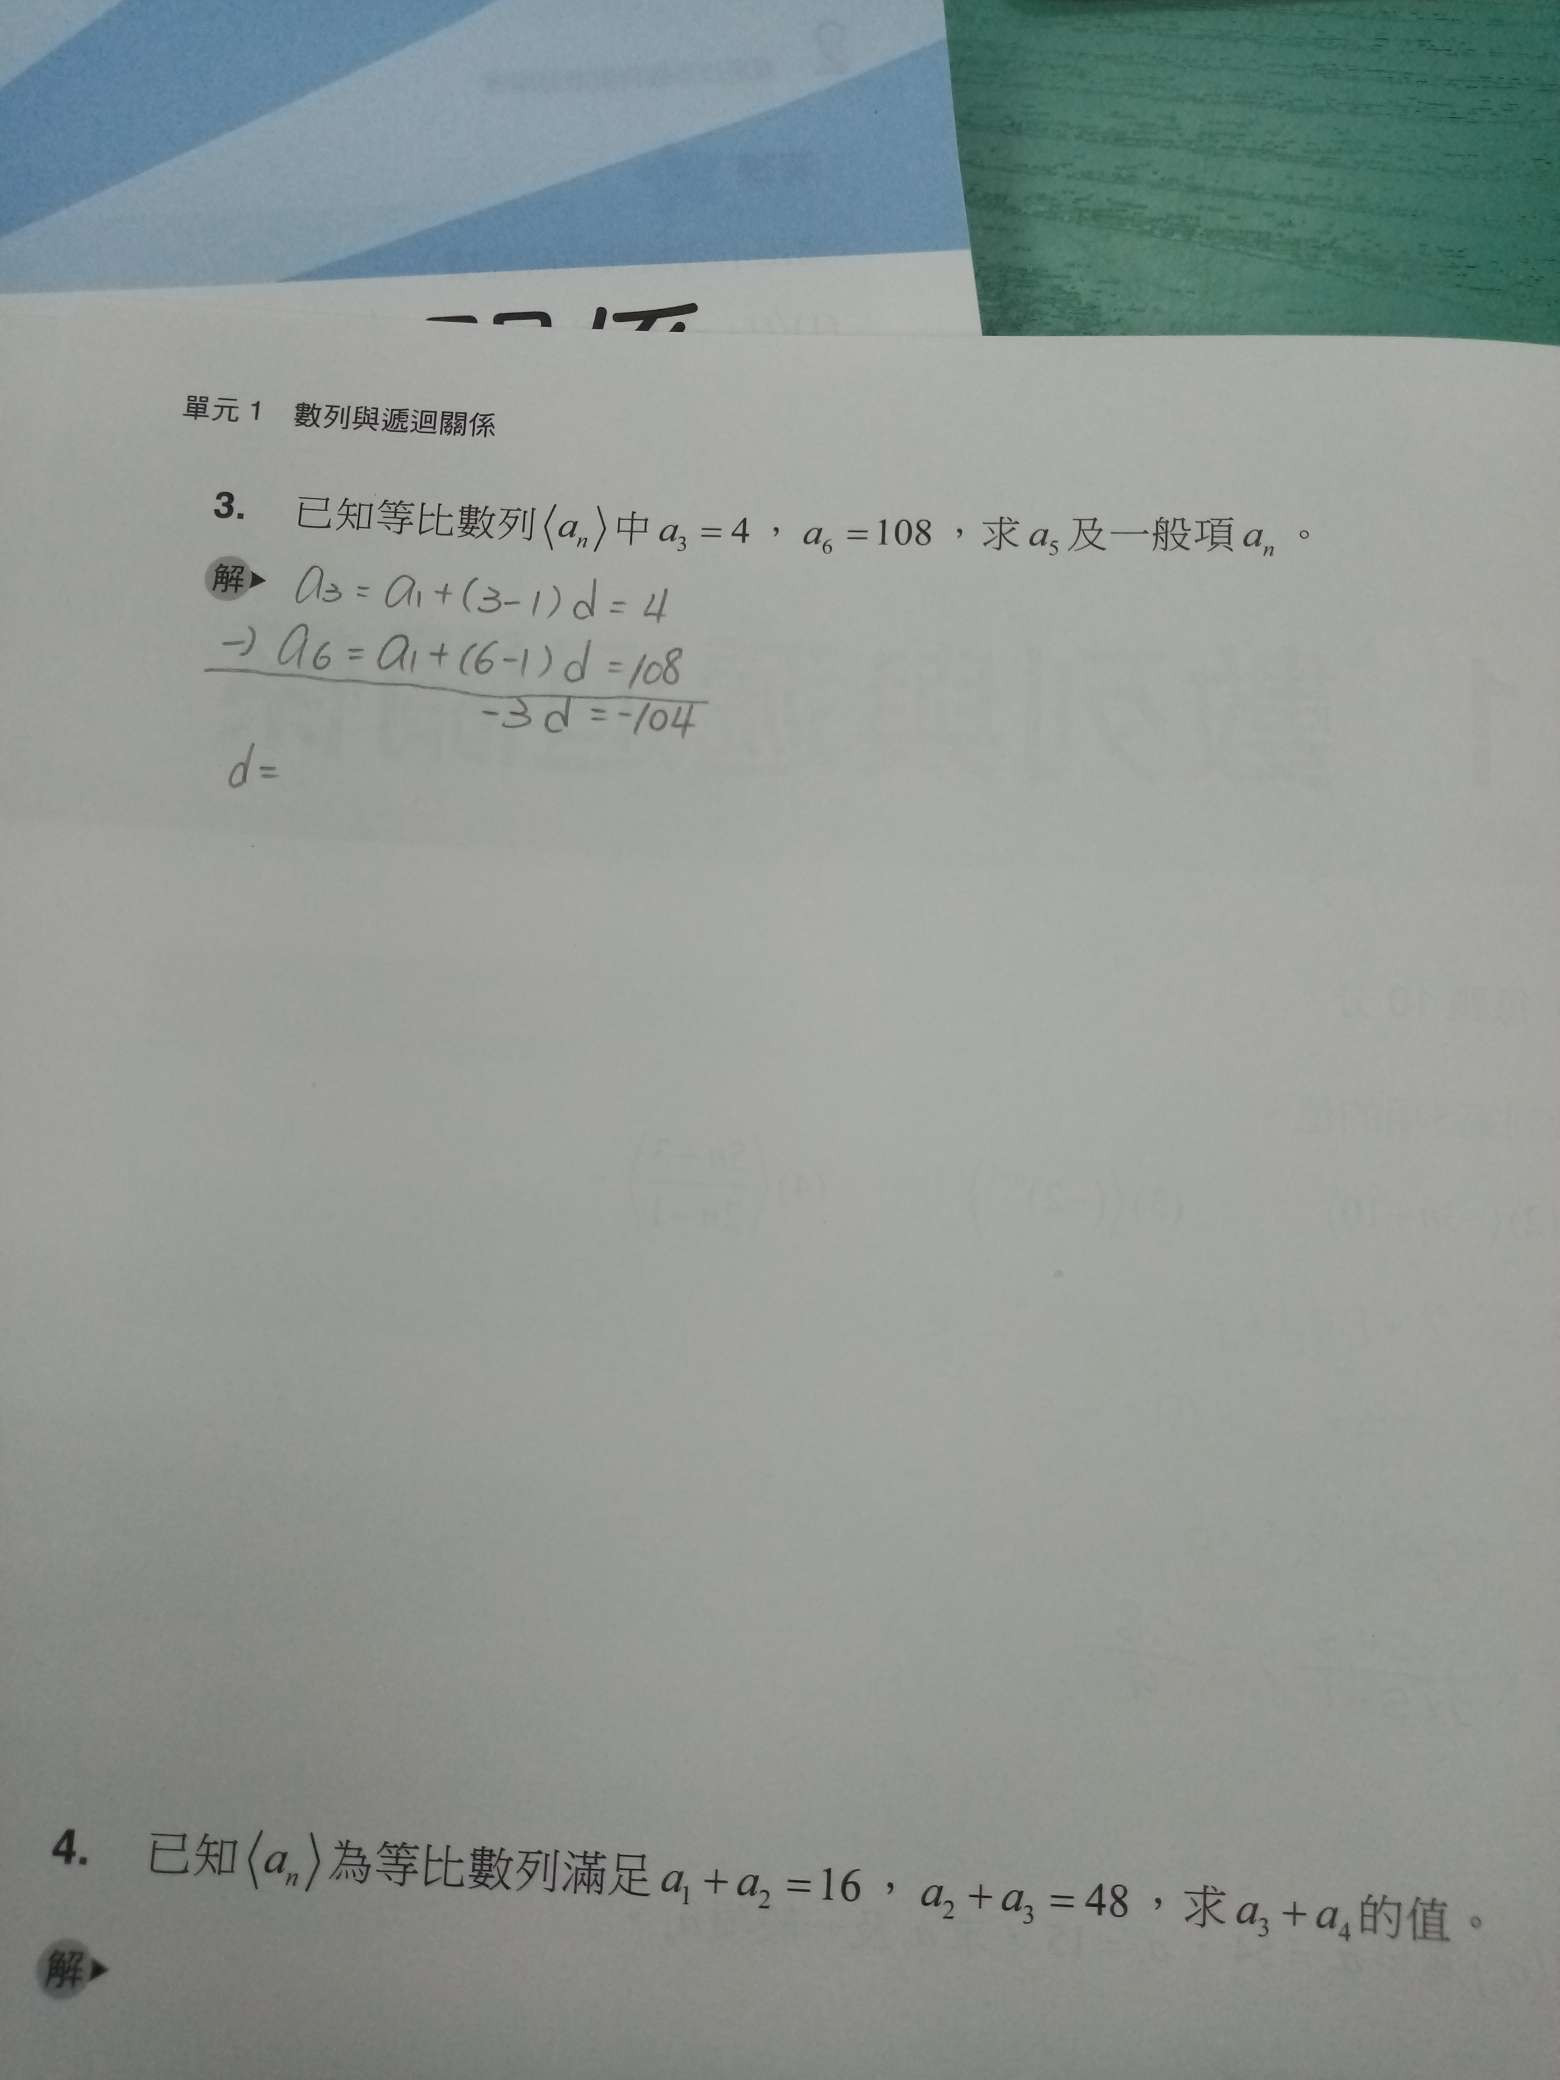 單元 1 數列與遞迴關係
3. 已知等比數列⟨aₙ⟩中 a₃ = 4，a₆ = 108，求 a₅ 及一般項 aₙ。
解▶ a₃ = a₁ + (3-1) d = 4
-) a₆ = a₁ + (6-1) d = 108
-3d = -104
d =
4. 已知⟨aₙ⟩為等比數列滿足 a₁ + a₂ = 16，a₂ + a₃ = 48，求 a₃ + a₄ 的值。
解▶